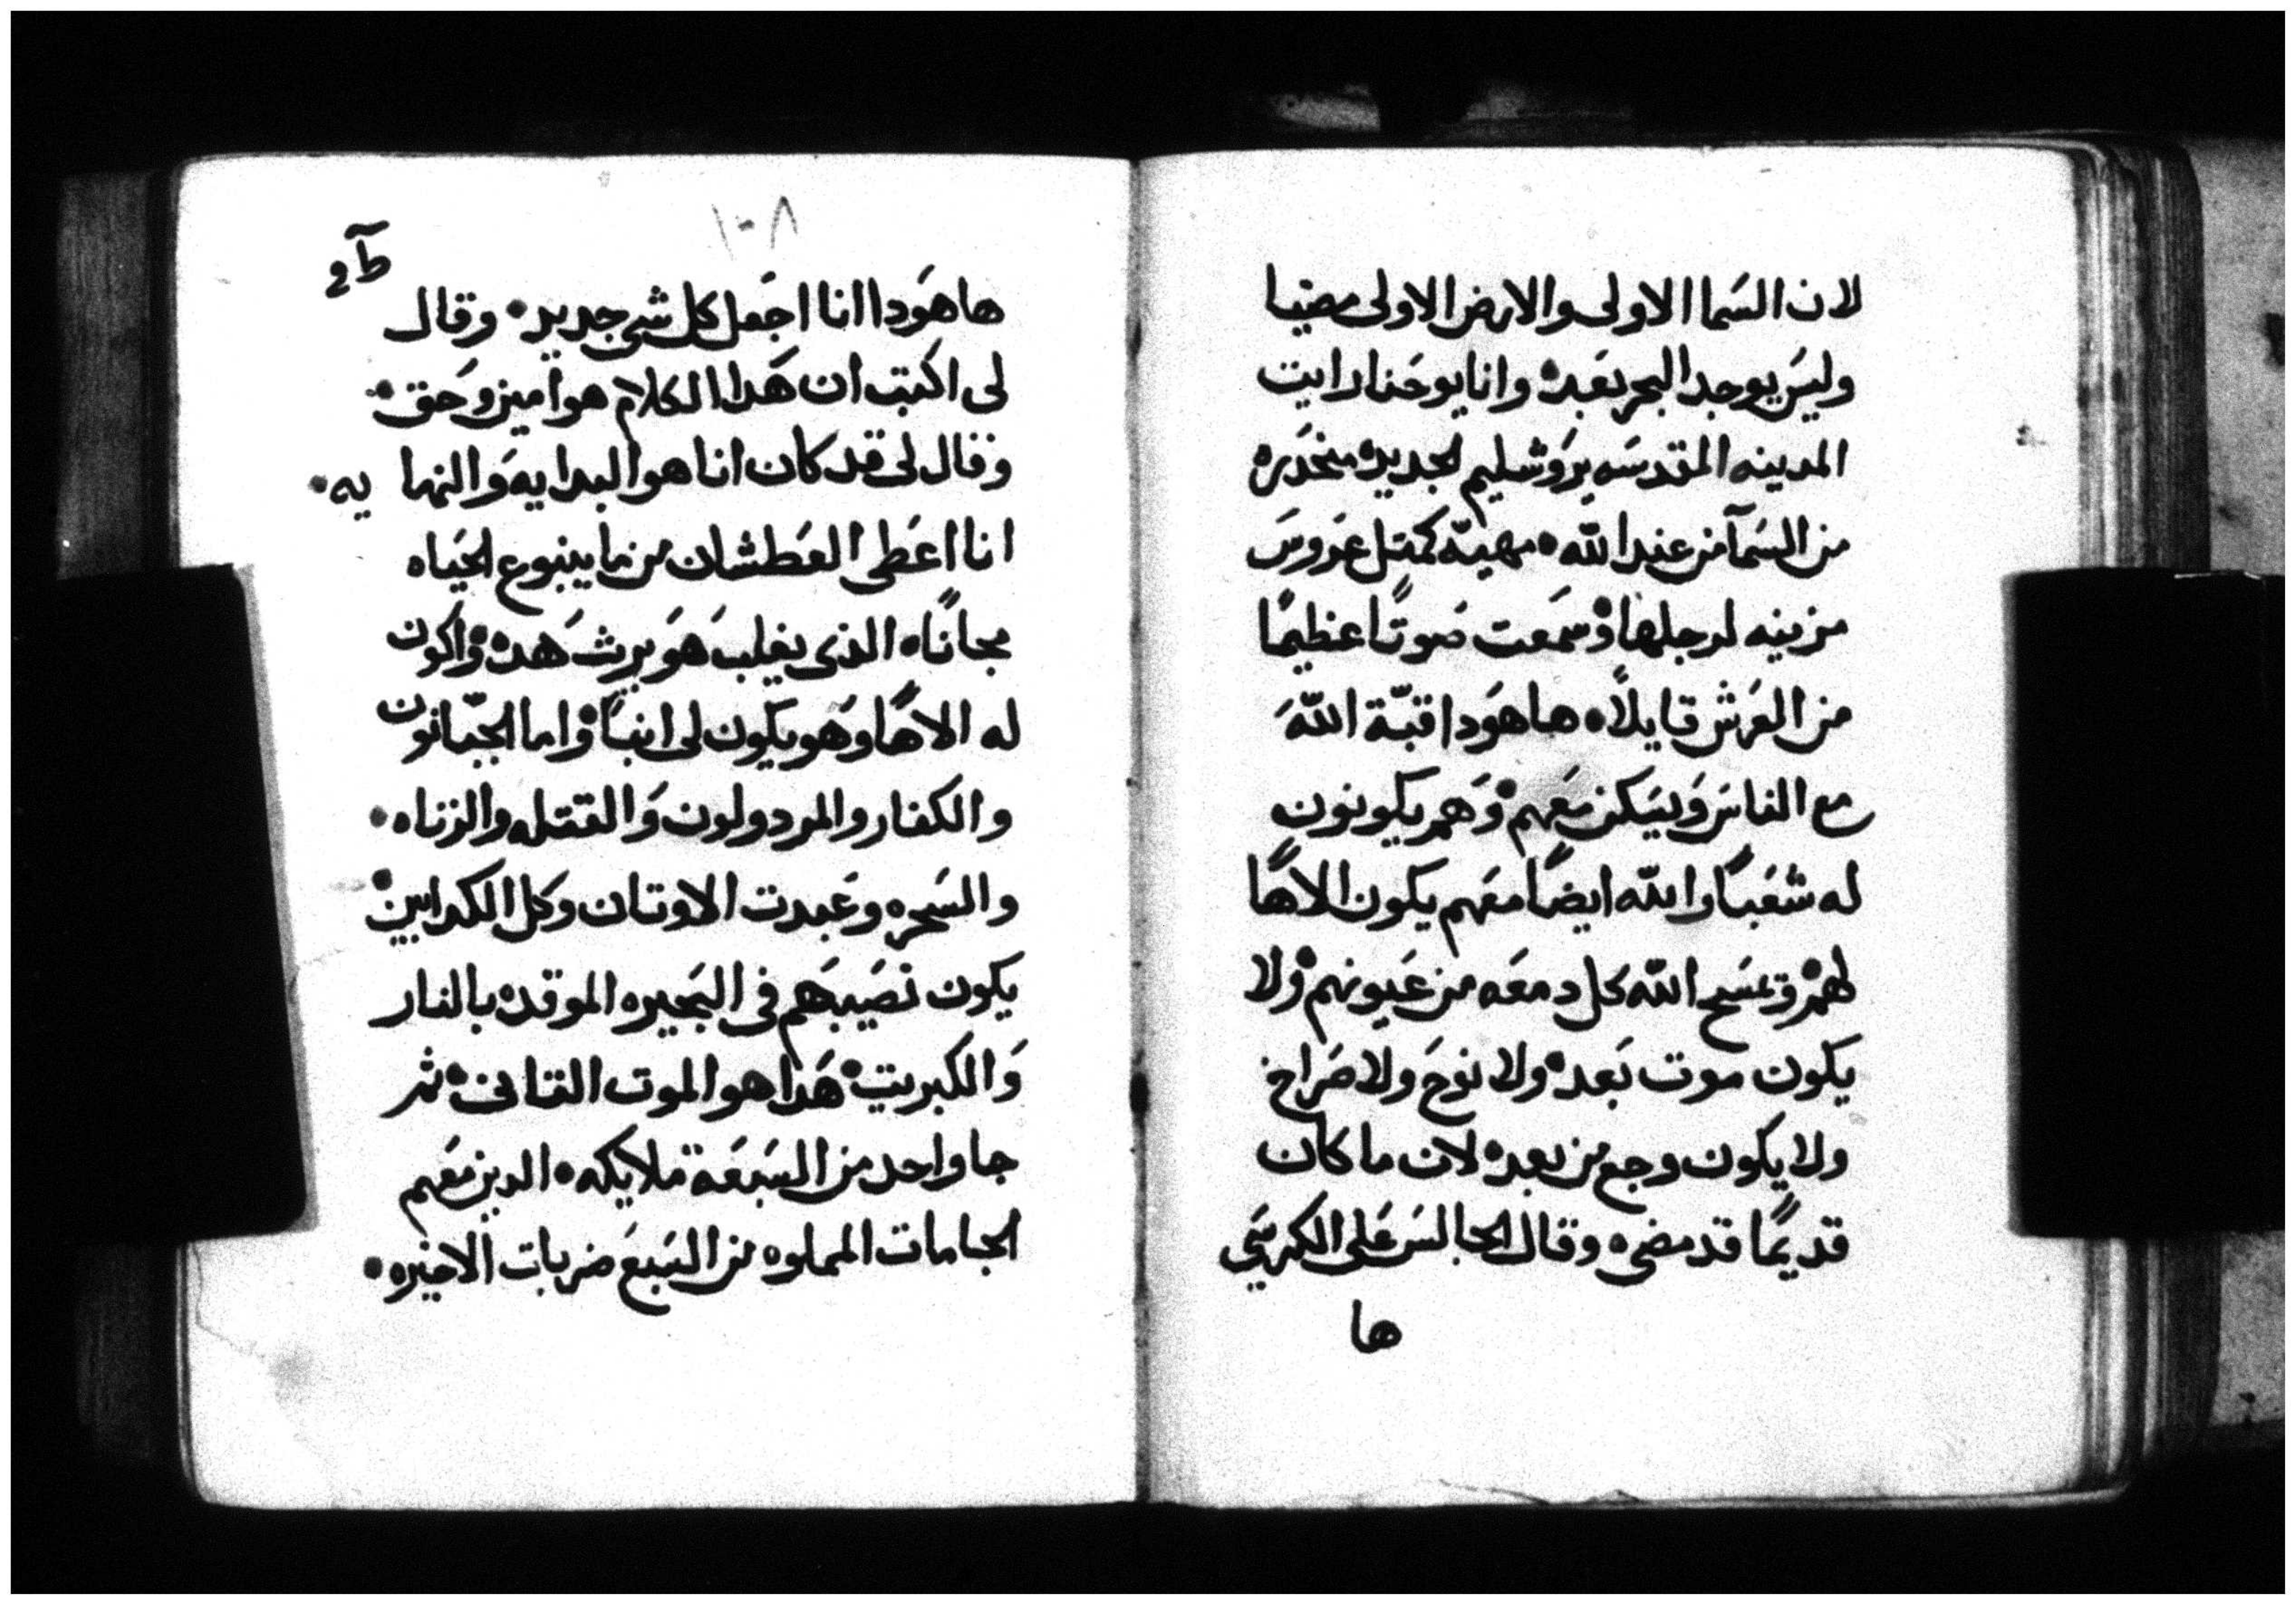 لان السَما الاولى والارض الاولى مضيا
وليسَ يوجد البحر بعَده وانا يوحَنا رايت
المدينه المقدسَه يرَوشليم الجديده منحَدَره
من السَمآ من عند الله مهيه كمتل عَروسَ
مزينه لرجلها وسَمَعت صَوتًا عظيمًا
من العَرَش قايلاً ها هوَدا قبّة اللهَ
مع الناسَ وَيسَكن مَعَهم وَهَم يكونون
له شعَبًا والله ايضًا معَهم يكون الاهًا
لهمَ ويمسَح الله كل دمعَه من عَيونهم ولا
يكون موت بَعَده ولا نوَحَ ولا صَراخ
ولا يكون وجع من بعده لان ما كان
قديمًا قد مضى وقال الجالسَ عَلى الكرسَي
ها
١٠٨
ها هوَدا انا اجَعل كل شي جديد وقال
لى اكتب ان هَدا الكلام هو امين وحَق
وقال لى قد كان انا هو البدايه وَالنهايه
انا اعَطى العَطشان من ما ينبوع الحيَاه
مجانًا الذى يغلب هَوَ يرث هَده واكون
له الاهًا وَهَو يكون لى ابنًا واما الجبّانون
والكفار والمردولون وَالقتله والزناه
والسَحره وعَبدت الاوتان وكل الكدابين
يكون نصَيبهَم فى البَحيره الموقده بالنار
وَالكبريت هَدا هو الموت التانى ثم
جا واحد من السَبعَة ملايكه الدين مَعَهم
الجامات المملوه من السَبعَ ضربات الاخيره